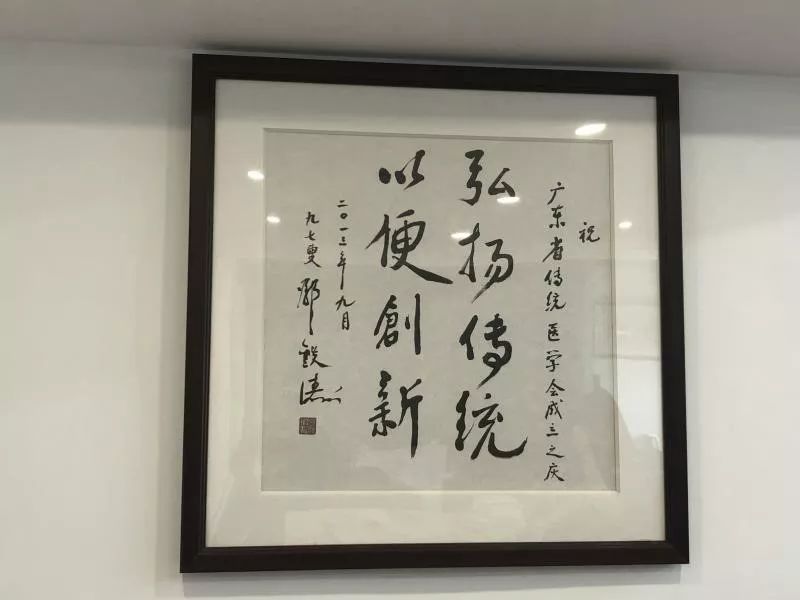 祝
广东省传统医学会成立之庆
弘扬傳統
以便創新
二〇一三年九月
九七叟 鄧鉄涛